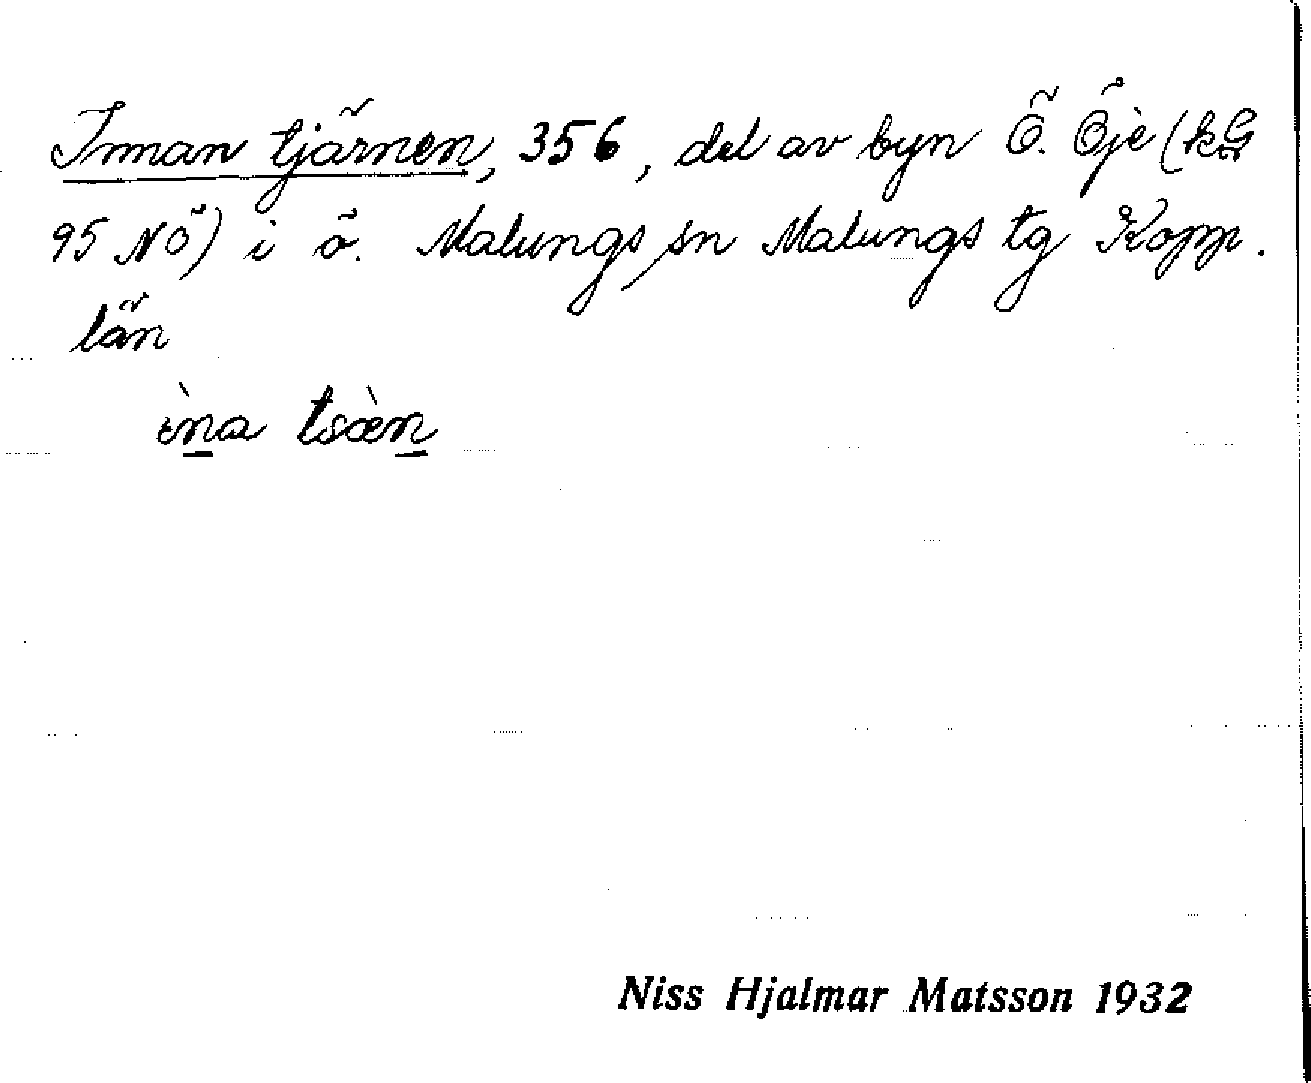 Innan tjärnen, 356, del av byn Ö. Öje (kG
95 NÖ) i ö. Malungs sn Malungs tg Kopp.
län
ìna tsæ̀n
Niss Hjalmar Matsson 1932